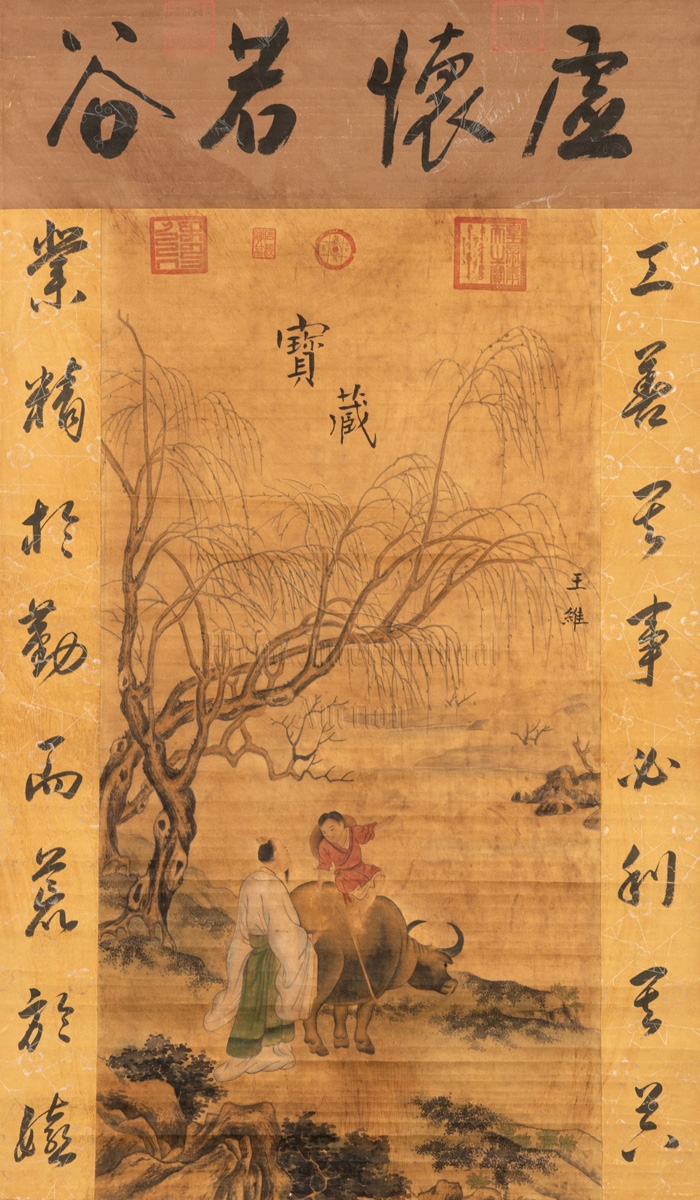 虛懷若谷
工善其事必利其器
王維
寶藏
業精於勤而荒於嬉